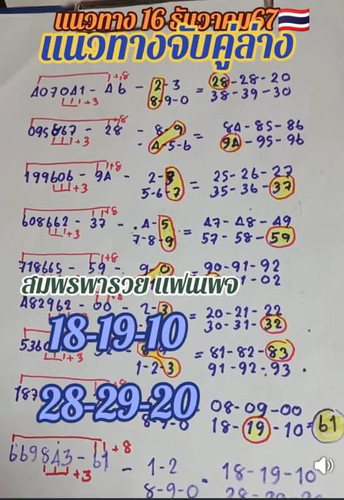 แนวทาง 16 ธันวาคม67🇹🇭
แนวทางจับคู่ล่าง
407041 - 46 - 2-3 = 28-28-20
+8
+3
8-9-0 38-39-30
095867 - 28 - 8-9 = 84-85-86
+8
+3
4-5-6 94-95-96
199606 - 94 - 2-3 = 25-26-27
+8
+3
5-6-7 35-36-37
608662 - 37 - 4-5 = 47-48-49
+8
+3
7-8-9 57-58-59
718665 - 59 - 9-0 = 90-91-92
+8
สมพรพารวย แฟนเพจ
482962 - 2-3 = 20-21-22
+3
30-31-32
18-19-10
536 = 81-82-83
+3
1-2-3 91-92-93
187
28-29-20
08-09-00
8-9-0 18-19-10 = 61
669843 - 61 - 1-2 = 18-19-10
+8
+3
8-9-0